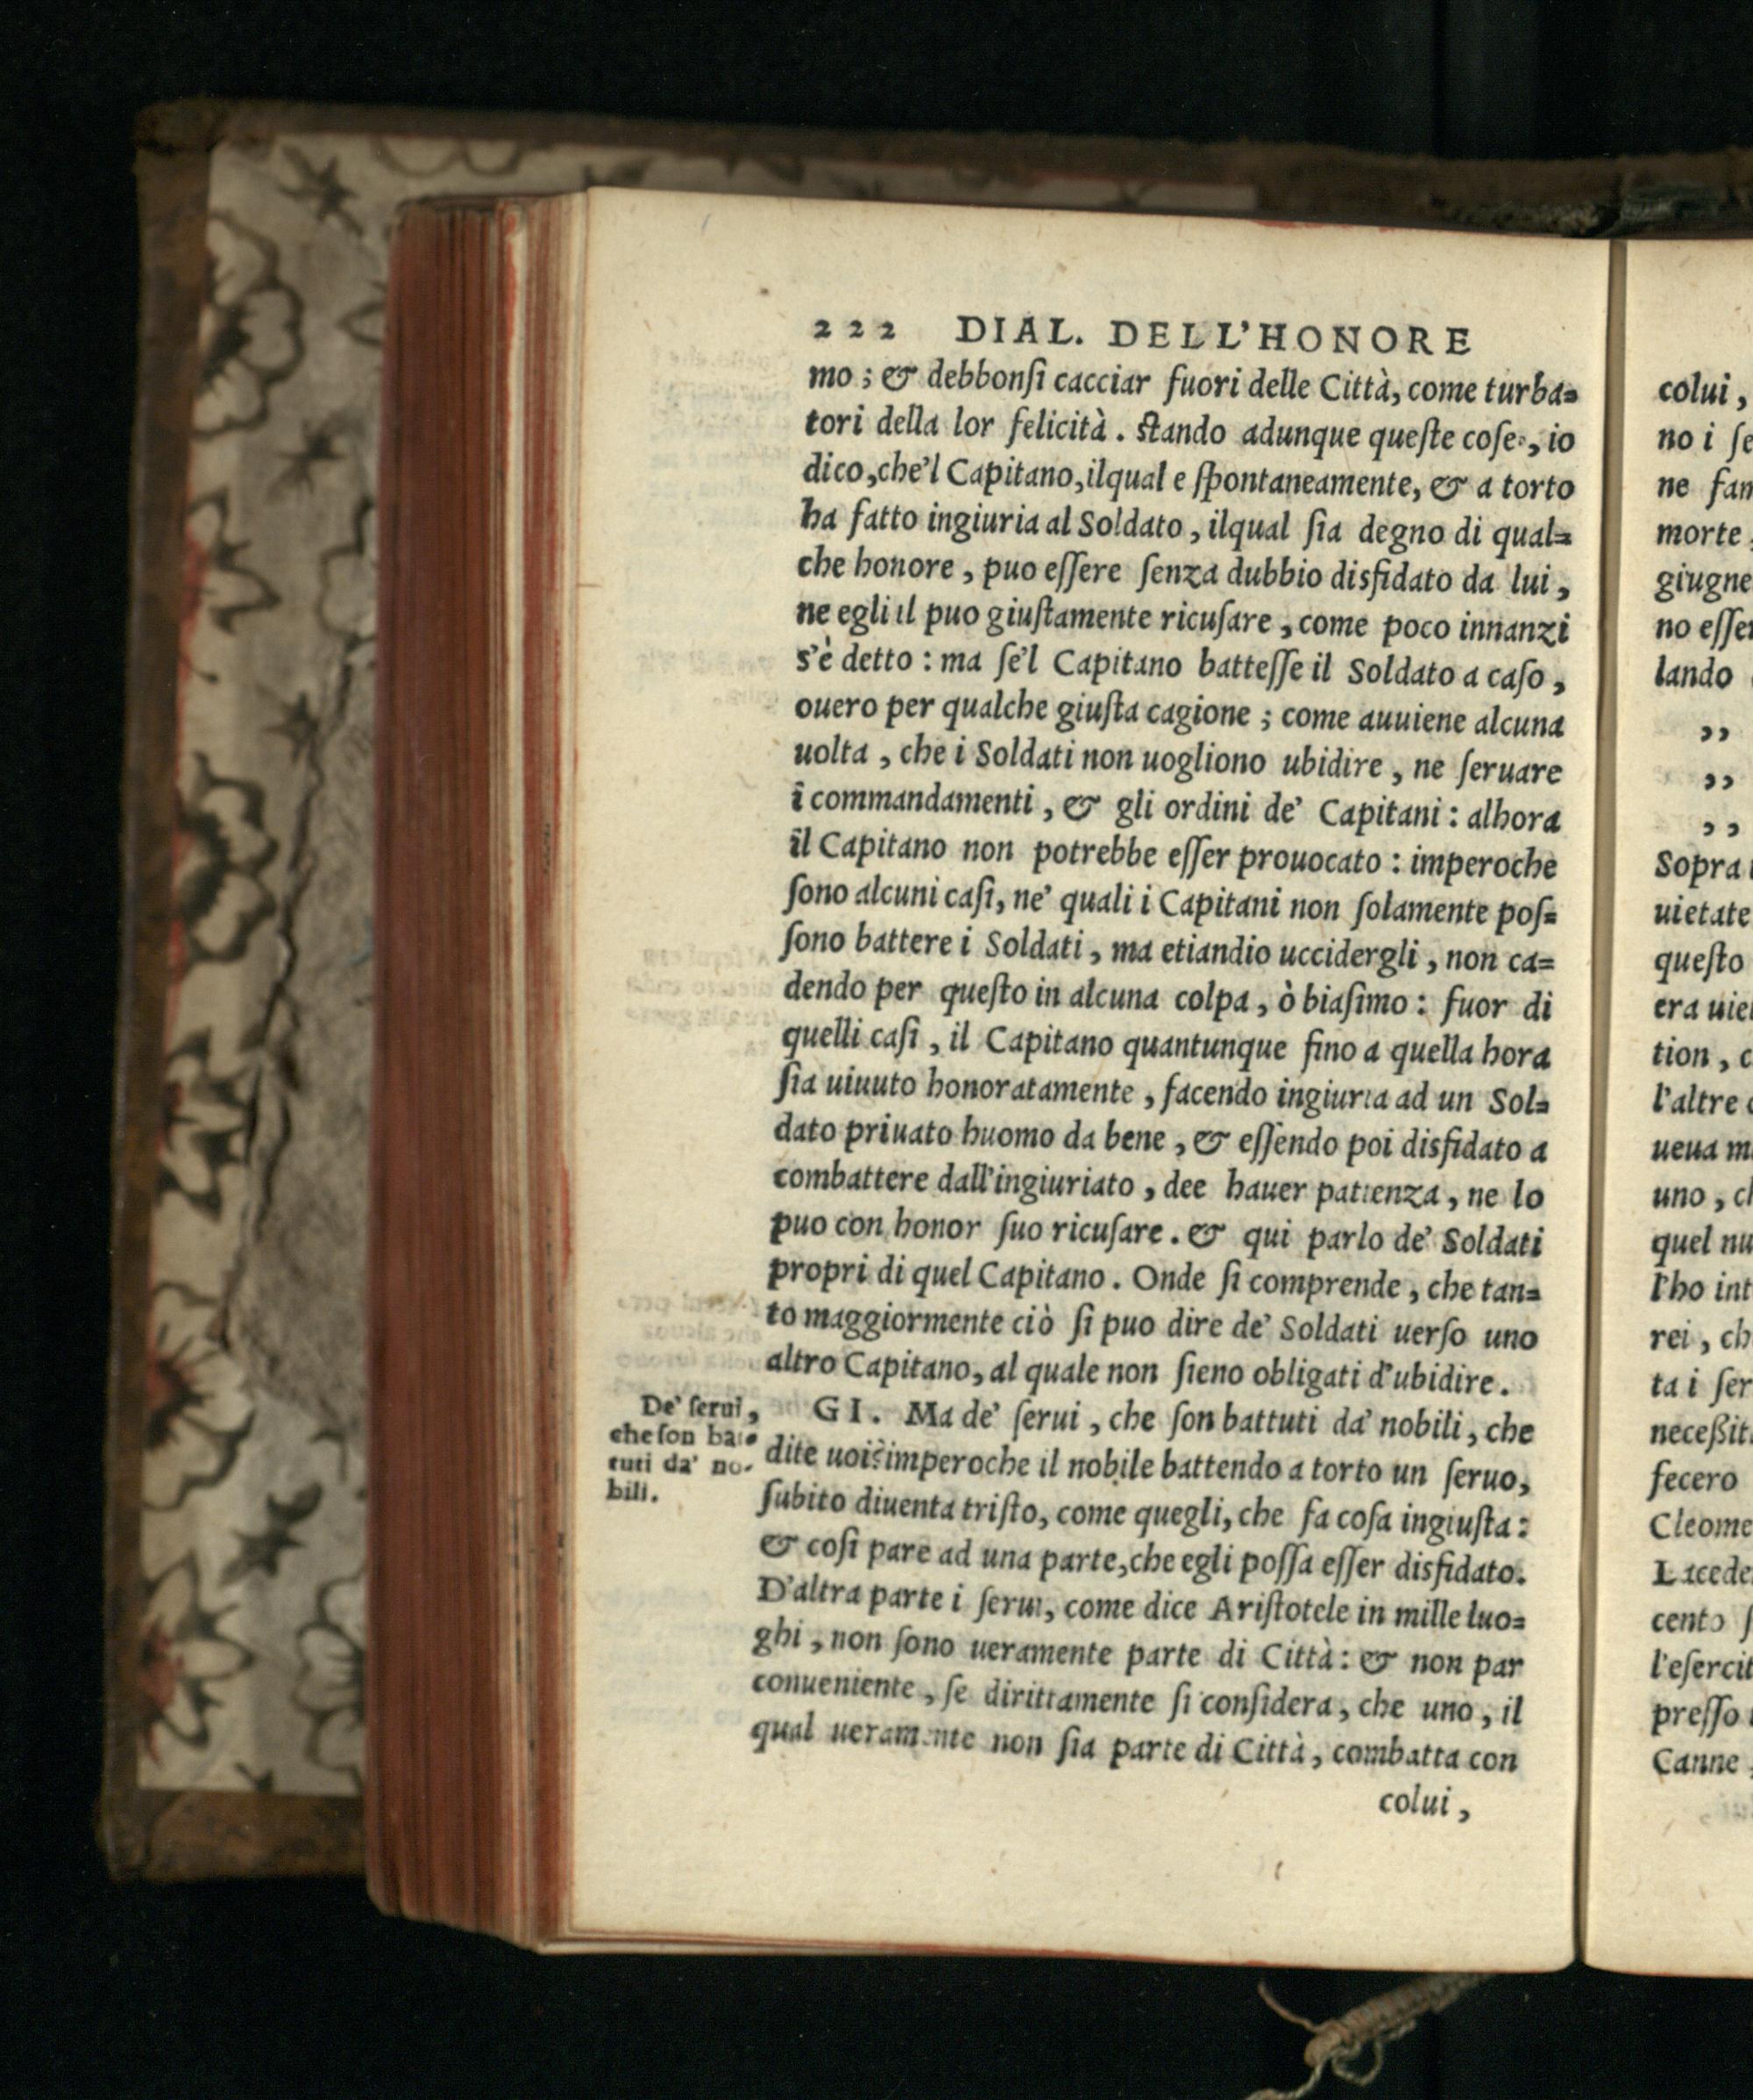 222 DIAL. DELL'HONORE
mo ; & debbonſi cacciar fuori delle Città, come turba=
tori della lor felicità . ſtando adunque queſte coſe , io
dico, che'l Capitano, ilqual e ſpontaneamente, & a torto
ha fatto ingiuria al Soldato , ilqual ſia degno di qual=
che honore , puo eſſere ſenza dubbio disfidato da lui ,
ne egli il puo giuſtamente ricuſare , come poco innanzi
s'è detto : ma ſe'l Capitano batteſſe il Soldato a caſo ,
ouero per qualche giuſta cagione ; come auuiene alcuna
uolta , che i Soldati non uogliono ubidire , ne ſeruare
i commandamenti , & gli ordini de' Capitani : alhora
il Capitano non potrebbe eſſer prouocato : imperoche
ſono alcuni caſi, ne' quali i Capitani non ſolamente poſ=
ſono battere i Soldati , ma etiandio uccidergli , non ca=
dendo per queſto in alcuna colpa , ò biaſimo : fuor di
quelli caſi , il Capitano quantunque fino a quella hora
ſia uiuuto honoratamente , facendo ingiuria ad un Sol=
dato priuato huomo da bene , & eſſendo poi disfidato a
combattere dall'ingiuriato , dee hauer patienza , ne lo
puo con honor ſuo ricuſare . & qui parlo de' Soldati
propri di quel Capitano . Onde ſi comprende , che tan=
to maggiormente ciò ſi puo dire de' Soldati uerſo uno
altro Capitano, al quale non ſieno obligati d'ubidire .
De' ſerui,
che ſon bat
tuti da' no-
bili.
GI. Ma de' ſerui , che ſon battuti da' nobili, che
dite uoi? imperoche il nobile battendo a torto un ſeruo,
ſubito diuenta triſto, come quegli, che fa coſa ingiuſta :
& coſi pare ad una parte, che egli poſſa eſſer disfidato.
D'altra parte i ſerui, come dice Ariſtotele in mille luo=
ghi , non ſono ueramente parte di Città : & non par
conueniente , ſe dirittamente ſi conſidera , che uno , il
qual ueramente non ſia parte di Città , combatta con
colui ,
colui ,
no i
ne
morte
giugne
no
lando
,,
,,
,,
Sopra
uietate
queſto
era
tion , 
l'altre
ueua
uno ,
quel
l'ho
rei ,
ta i
fecero
l'
Canne